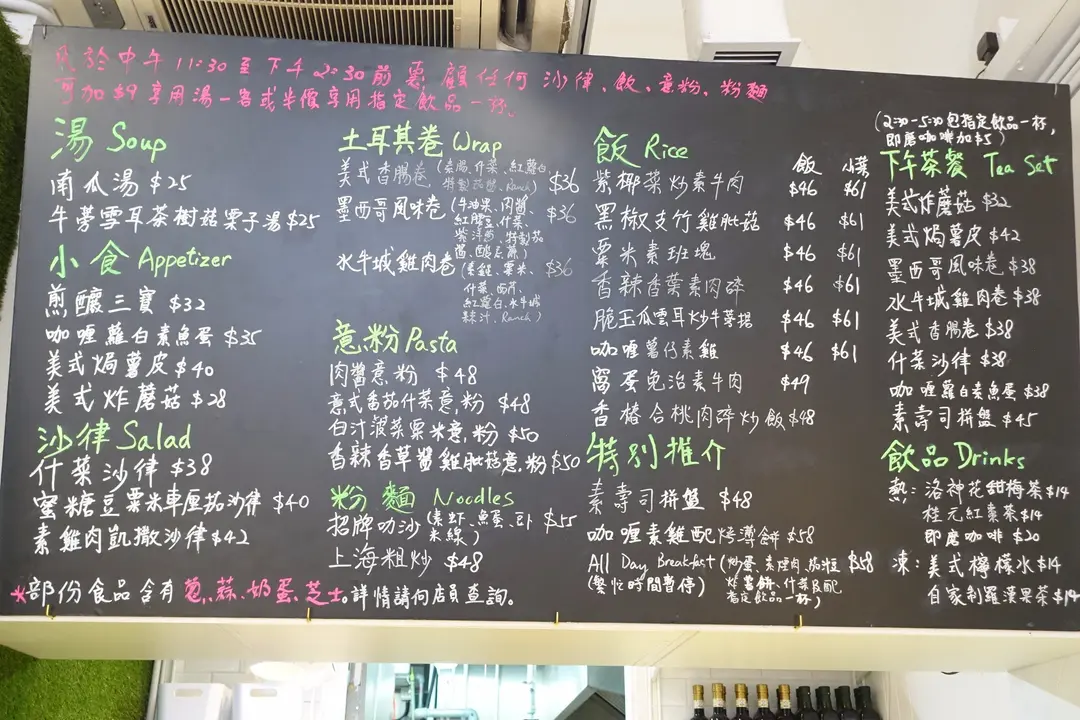 凡於中午 11:30 至 下午 2:30 前惠顧任何 沙律、飯、意粉、粉麵
可加 $9 享用湯一客或半價享用指定飲品一杯。
湯 Soup
南瓜湯 $25
牛蒡雪耳茶樹菇栗子湯 $25
小食 Appetizer
煎釀三寶 $32
咖喱蘿白素魚蛋 $35
美式焗薯皮 $40
美式炸蘑菇 $28
沙律 Salad
什菜沙律 $38
蜜糖豆粟米車厘茄沙律 $40
素雞肉凱撒沙律 $42
土耳其卷 Wrap
美式香腸卷 (素腸、什菜、紅蘿白 $36
特製芥醬、Ranch)
墨西哥風味卷 (牛油果、肉醬、 $36
紅腰豆、什菜、
紫洋蔥、特製茄
醬、酸忌廉)
水牛城雞肉卷 (素雞、粟米、 $36
什菜、西芹、
紅蘿白、水牛城
辣汁、Ranch)
意粉 Pasta
肉醬意粉 $48
意式番茄什菜意粉 $48
白汁波菜粟米意粉 $50
香辣香草醬雞肶菇意粉 $50
粉麵 Noodles
招牌叻沙 (素蝦、魚蛋、豆卜 $55
米線)
上海粗炒 $48
飯 Rice 飯 小菜
紫椰菜炒素牛肉 $46 $61
黑椒支竹雞肶菇 $46 $61
粟米素班塊 $46 $61
香辣香葉素肉碎 $46 $61
脆玉瓜雲耳炒牛蒡 $46 $61
咖喱薯仔素雞 $46 $61
窩蛋免治素牛肉 $49
香椿合桃肉碎炒飯 $48
特別推介
素壽司拼盤 $48
咖喱素雞配烤薄餅 $58
All Day Breakfast (炒蛋、素煙肉、 $58
(繁忙時間暫停) 炸薯餅、什菜及配
指定飲品一杯)
(2:30-5:30 包指定飲品一杯,
即磨咖啡加 $5)
下午茶餐 Tea Set
美式炸蘑菇 $32
美式焗薯皮 $42
墨西哥風味卷 $38
水牛城雞肉卷 $38
美式香腸卷 $38
什菜沙律 $38
咖喱蘿白素魚蛋 $38
素壽司拼盤 $45
飲品 Drinks
熱: 洛神花甜梅茶 $14
桂元紅棗茶 $14
即磨咖啡 $20
凍: 美式檸檬水 $14
自家制羅漢果茶 $14
*部份食品含有蔥、蒜、奶蛋、芝士。詳情請向店員查詢。